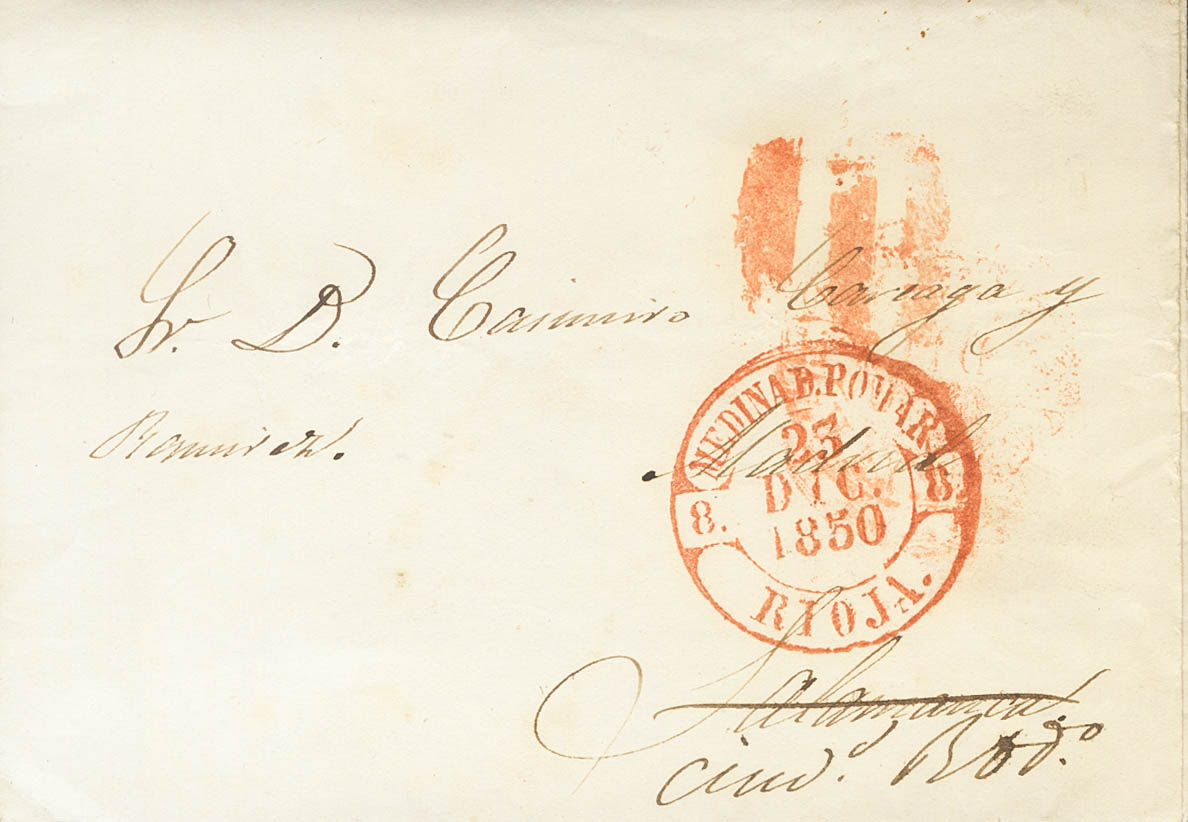 Sr. D. Casimiro Cariaga y
Ramirez.
MEDINA D. POMAR.
23
DIC.
1850
8. 8.
RIOJA.
Salamanca
ciud.ᵈ Rod.ᵍᵒ